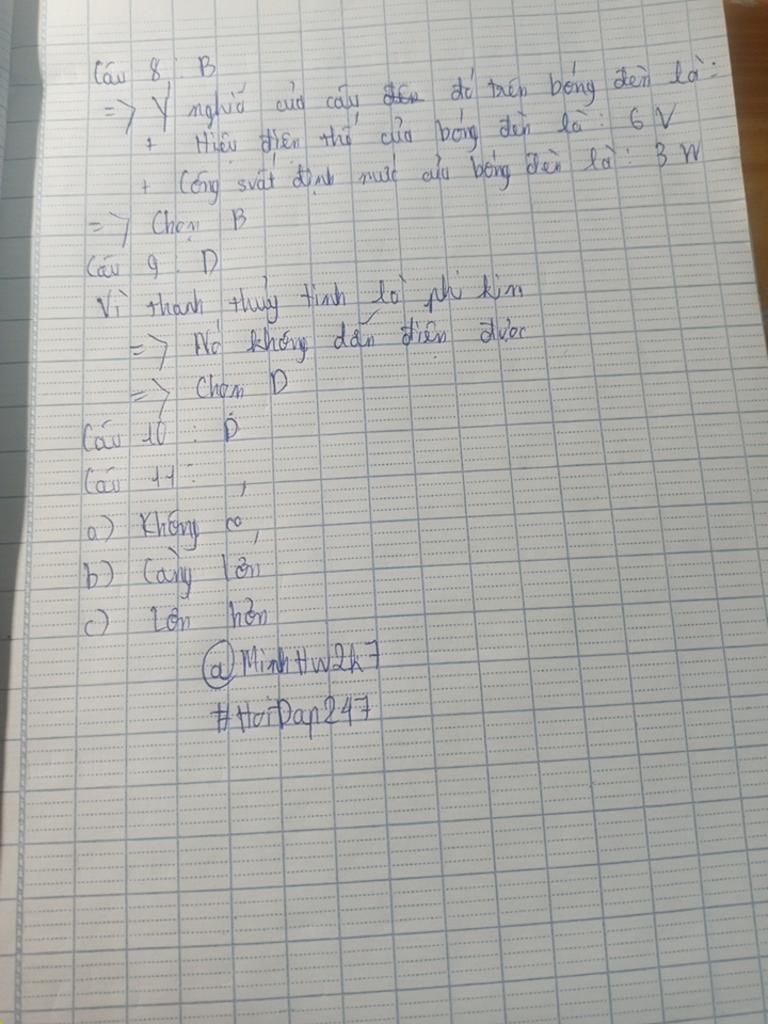 Câu 8 : B
=> Ý nghĩa của câu đèn đó trên bóng đèn là :
+ Hiệu điện thế của bóng đèn là : 6 V
+ Công suất định mức của bóng đèn là : 3 W
=> Chọn B
Câu 9 : D
Vì thanh thủy tinh là phi kim
=> Nó không dẫn điện được
=> Chọn D
Câu 10 : D
Câu 11 :
a) Không có
b) Càng lớn
c) Lớn hơn
@MinhHw2k7
#HoiDap247